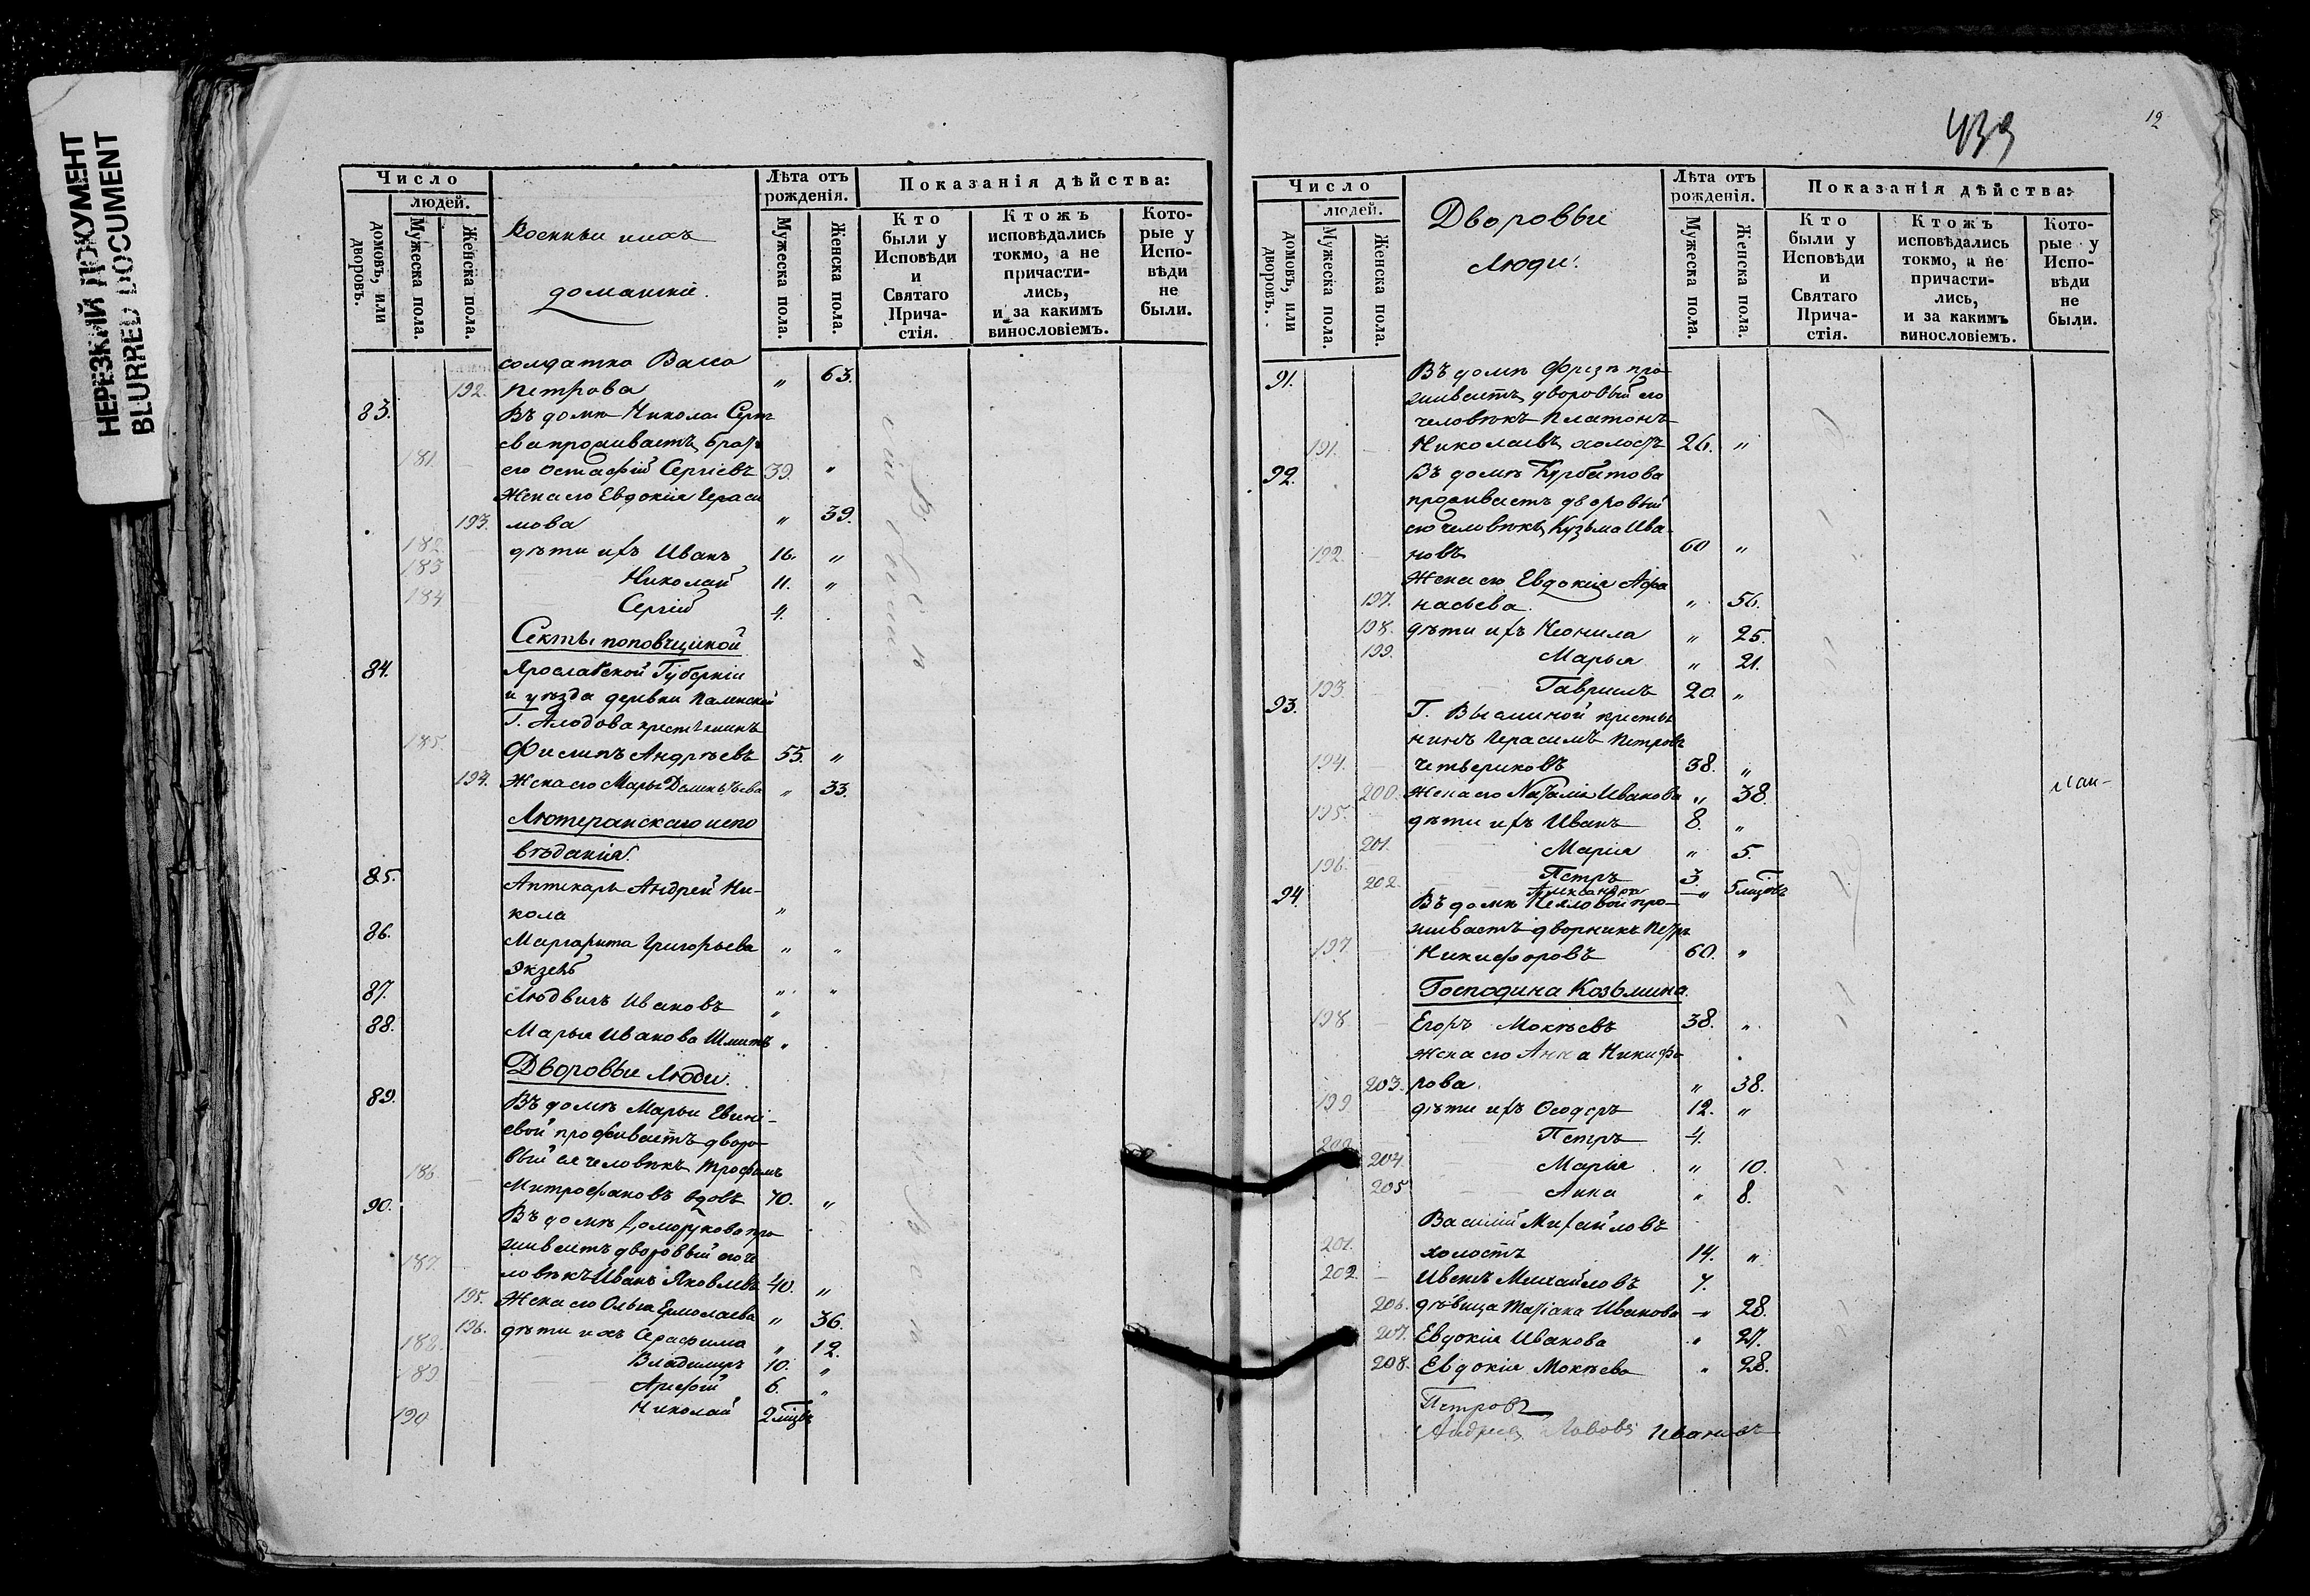 НЕРЕЗКИЙ ДОКУМЕНТ
BLURRED DOCUMENT
Число
людей.
домовъ, или дворовъ.
Мужеска пола.
Женска пола.
Военные ихъ
домашніе.
Лѣта отъ рожденія.
Мужеска пола.
Женска пола.
Показанія дѣйства:
Кто были у Исповѣди и Святаго Прича-стія.
Ктожъ исповѣдались токмо, а не причасти-лись, и за какимъ винословіемъ.
Кото-рые у Испо-вѣди не были.
солдатка Васса
192. Петрова " 63.
83. Въ домѣ Николая Серге
ева проживаетъ братъ
181. его Остафій Сергіевъ 39. "
Жена его Евдокія Гераси
193. мова " 39.
182 дѣти ихъ Иванъ 16. "
183 Николай 11. "
184 Сергій 4.
Секты поповщиной
84. Ярославской Губерніи
и уѣзда деревни
Г. крестьянинъ
185. Филипъ Андрѣевъ 55. "
194. Жена его Марья Дементьева " 33.
Лютеранскаго испо
вѣданія.
85. Аптекарь Андрей Ни-
кола "
86. Маргарита Григорьева " "
87. Людвигъ Ивановъ "
88. Марья Иванова Шмитъ "
Дворовые люди.
89. Въ домѣ Марьи Евгені-
евой проживаетъ дворо-
вый ея человѣкъ Трофимъ
186 Митрофановъ вдовъ 70. "
90. Въ домѣ Доморукова про
живаетъ дворовый его че
187. ловѣкъ Иванъ Яковлевъ 40. "
195. Жена его Ольга Ермолаева " 36.
196. дѣти ихъ Серафима " 12.
188. Владимиръ 10. "
189 Арефій 6. "
190 Николай 2 мѣцвъ
439
12
Число
людей.
домовъ, или дворовъ.
Мужеска пола.
Женска пола.
Дворовые
Люди.
Лѣта отъ рожденія.
Мужеска пола.
Женска пола.
Показанія дѣйства:
Кто были у Исповѣди и Святаго Прича-стія.
Ктожъ исповѣдались токмо, а не причасти-лись, и за какимъ винословіемъ.
Кото-рые у Испо-вѣди не были.
91. Въ домѣ Фризѣ про-
живаетъ дворовый его
человѣкъ Платонъ
191. Николаевъ холостъ 26. "
92. Въ домѣ Курбатова
проживаетъ дворовый
его человѣкъ Кузьма Ива-
192. новъ 60 "
Жена его Евдокія Афа
197. насьева. " 56.
198. дѣти ихъ Неонила " 25.
199. Марья " 21.
193 Гавриилъ 20. "
93. Г. крестья
нинъ Герасимъ Петровъ
194. Четвериковъ 38. "
200. Жена его Наталія Иванова " 38.
195. дѣти ихъ Иванъ 8. "
201. Марія " 5.
196. Петръ 3.
202. Александра " 5 мѣцвъ
94. Въ домѣ про-
живаетъ дворникъ Петръ
197 Никифоровъ 60. "
Господина Козьмина.
198. Егоръ Мокѣевъ 38. "
жена его Анна Никифо
203. рова. " 38.
199 дѣти ихъ Ѳеодоръ 12. "
200 Петръ 4.
204. Марія " 10.
205 Анна " 8.
Василій Михайловъ
201. холостъ 14. "
202 Иванъ Михайловъ 7.
206. дѣвица Татіана Иванова " 28.
207. Евдокія Иванова " 27.
208. Евдокія Мокѣева " 28.
Петровъ
Андрей Ивановъ